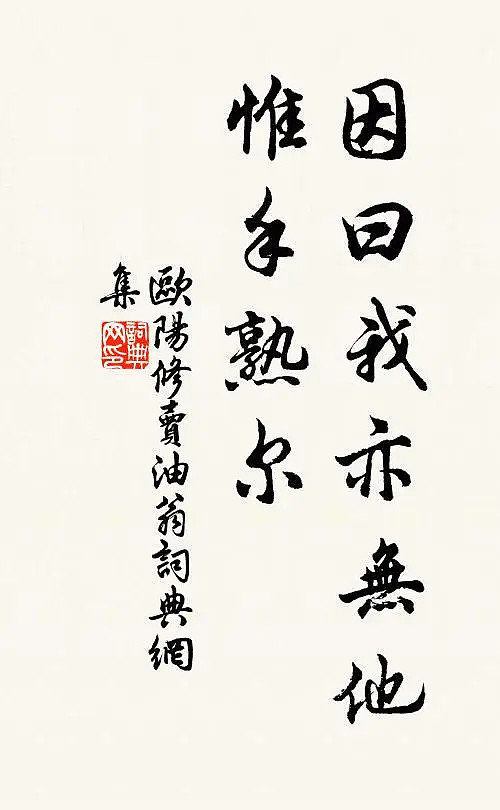 因曰我亦無他
惟手熟尔
歐陽修賣油翁詞典網
集
詞典
网印